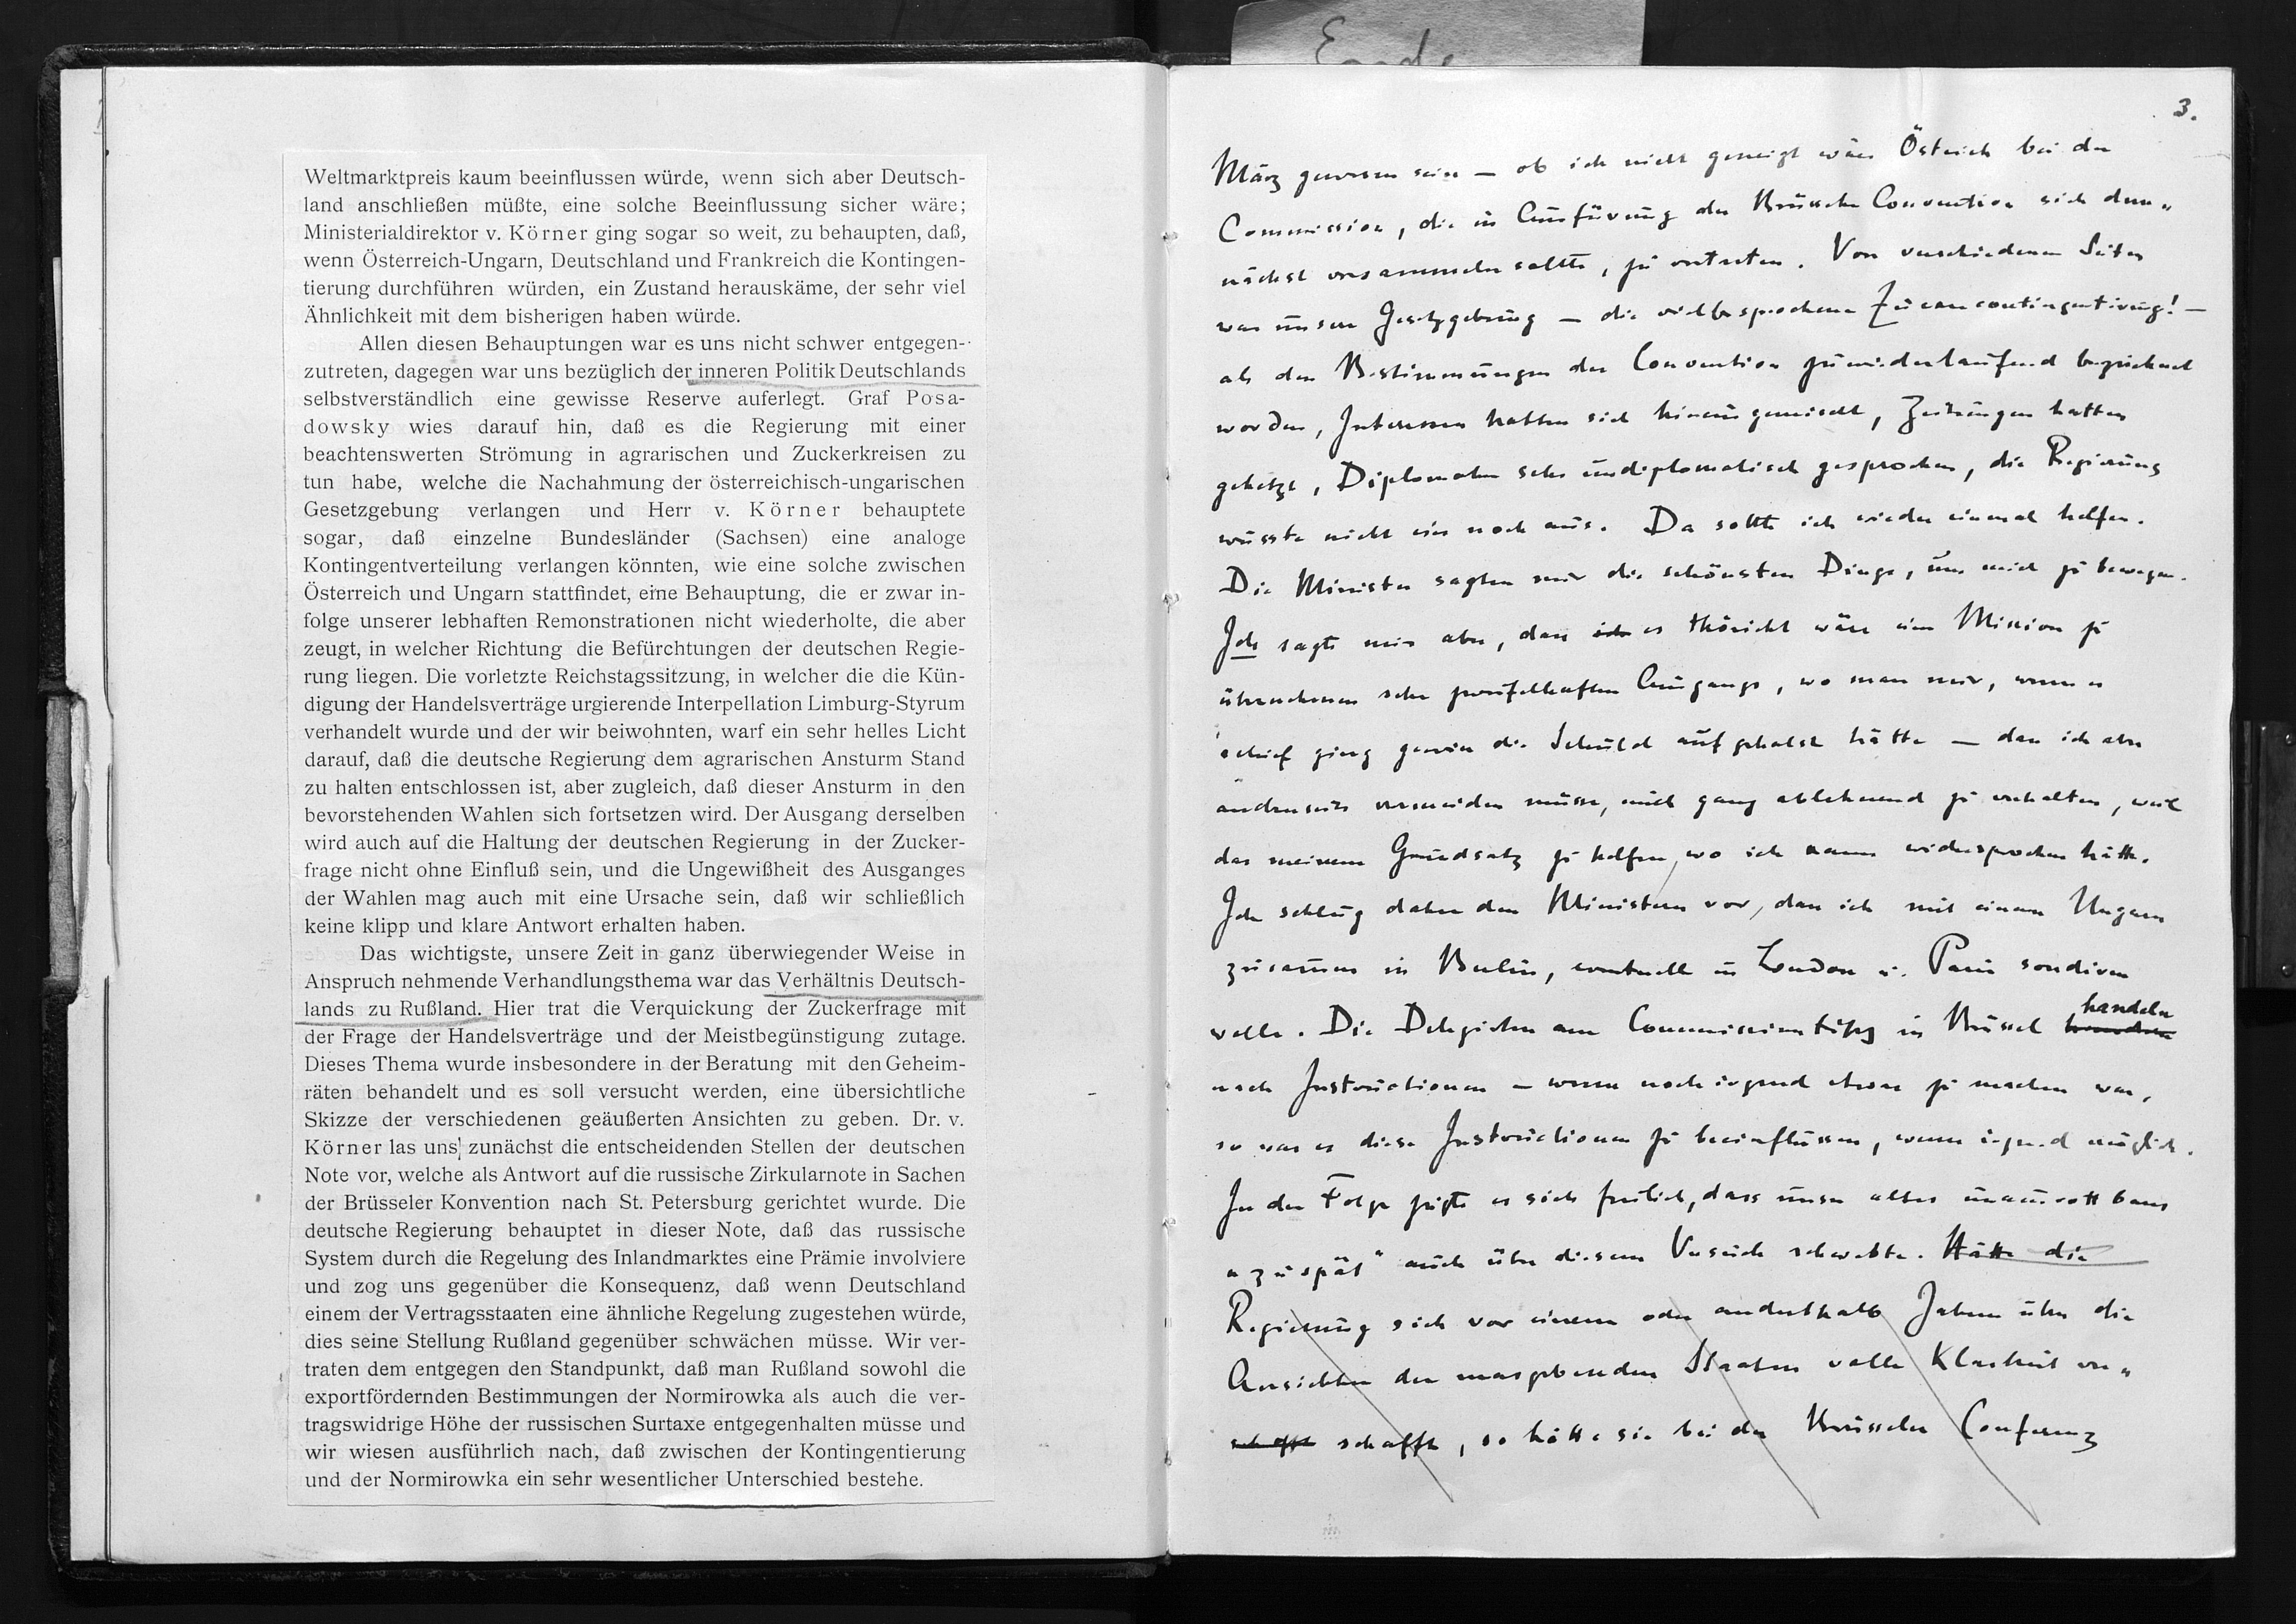 Ende
Weltmarktpreis kaum beeinflussen würde, wenn sich aber Deutsch-
land anschließen müßte, eine solche Beeinflussung sicher wäre;
Ministerialdirektor v. Körner ging sogar so weit, zu behaupten, daß,
wenn Österreich-Ungarn, Deutschland und Frankreich die Kontingen-
tierung durchführen würden, ein Zustand herauskäme, der sehr viel
Ähnlichkeit mit dem bisherigen haben würde.
Allen diesen Behauptungen war es uns nicht schwer entgegen-
zutreten, dagegen war uns bezüglich der inneren Politik Deutschlands
selbstverständlich eine gewisse Reserve auferlegt. Graf Posa-
dowsky wies darauf hin, daß es die Regierung mit einer
beachtenswerten Strömung in agrarischen und Zuckerkreisen zu
tun habe, welche die Nachahmung der österreichisch-ungarischen
Gesetzgebung verlangen und Herr v. Körner behauptete
sogar, daß einzelne Bundesländer (Sachsen) eine analoge
Kontingentverteilung verlangen könnten, wie eine solche zwischen
Österreich und Ungarn stattfindet, eine Behauptung, die er zwar in-
folge unserer lebhaften Remonstrationen nicht wiederholte, die aber
zeugt, in welcher Richtung die Befürchtungen der deutschen Regie-
rung liegen. Die vorletzte Reichstagssitzung, in welcher die die Kün-
digung der Handelsverträge urgierende Interpellation Limburg-Styrum
verhandelt wurde und der wir beiwohnten, warf ein sehr helles Licht
darauf, daß die deutsche Regierung dem agrarischen Ansturm Stand
zu halten entschlossen ist, aber zugleich, daß dieser Ansturm in den
bevorstehenden Wahlen sich fortsetzen wird. Der Ausgang derselben
wird auch auf die Haltung der deutschen Regierung in der Zucker-
frage nicht ohne Einfluß sein, und die Ungewißheit des Ausganges
der Wahlen mag auch mit eine Ursache sein, daß wir schließlich
keine klipp und klare Antwort erhalten haben.
Das wichtigste, unsere Zeit in ganz überwiegender Weise in
Anspruch nehmende Verhandlungsthema war das Verhältnis Deutsch-
lands zu Rußland. Hier trat die Verquickung der Zuckerfrage mit
der Frage der Handelsverträge und der Meistbegünstigung zutage.
Dieses Thema wurde insbesondere in der Beratung mit den Geheim-
räten behandelt und es soll versucht werden, eine übersichtliche
Skizze der verschiedenen geäußerten Ansichten zu geben. Dr. v.
Körner las uns zunächst die entscheidenden Stellen der deutschen
Note vor, welche als Antwort auf die russische Zirkularnote in Sachen
der Brüsseler Konvention nach St. Petersburg gerichtet wurde. Die
deutsche Regierung behauptet in dieser Note, daß das russische
System durch die Regelung des Inlandmarktes eine Prämie involviere
und zog uns gegenüber die Konsequenz, daß wenn Deutschland
einem der Vertragsstaaten eine ähnliche Regelung zugestehen würde,
dies seine Stellung Rußland gegenüber schwächen müsse. Wir ver-
traten dem entgegen den Standpunkt, daß man Rußland sowohl die
exportfördernden Bestimmungen der Normirowka als auch die ver-
tragswidrige Höhe der russischen Surtaxe entgegenhalten müsse und
wir wiesen ausführlich nach, daß zwischen der Kontingentierung
und der Normirowka ein sehr wesentlicher Unterschied bestehe.
3.
März gewesen sein — ob ich nicht geneigt wäre Östreich bei der
Commission, die in Ausfürung der Brüsseler Convention sich dem„
nächst versammeln sollte, zu vertreten. Von verschiedenen Seiten
war unsere Gesetzgebung — die vielbesprochene Zuckercontingentirung! —
als den Bestimmungen der Convention zuwiderlaufend bezeichnet
worden, Interessen hatten sich hineingemischt, Zeitungen hatten
gehetzt, Diplomaten sehr undiplomatisch gesprochen, die Regierung
wusste nicht ein noch aus. Da sollte ich wieder einmal helfen.
Die Minister sagten mir die schönsten Dinge, um mich zu bewegen.
Ich sagte mir aber, dass ich es thöricht wäre eine Mission zu
übernehmen sehr zweifelhaften Ausgangs, wo man mir, wenn es
schief ging gewiss die Schuld aufgehalst hätte — dass ich aber
andrerseits vermeiden müsse, mich ganz ablehnend zu verhalten, weil
das meinem Grundsatz zu helfen, wo ich kann widersprochen hätte.
Ich schlug daher den Ministern vor, dass ich mit einem Ungarn
zusammen in Berlin, eventuell in London u. Paris sondiren
wolle. Die Delegirten am Commissionssitz in Brüssel handeln
nach Instructionen — wenn noch irgend etwas zu machen war,
so war es diese Instructionen zu beeinflussen, wenn irgend möglich.
In der Folge zeigte es sich freilich, dass unser altes unausrottbares
„zu spät" auch über diesem Versuch schwebte. Hätte die
Regierung sich vor einem oder anderthalb Jahren über die
Ansichten der massgebenden Staaten volle Klarheit ver„
schafft, so hätte sie bei der Brüsseler Conferenz